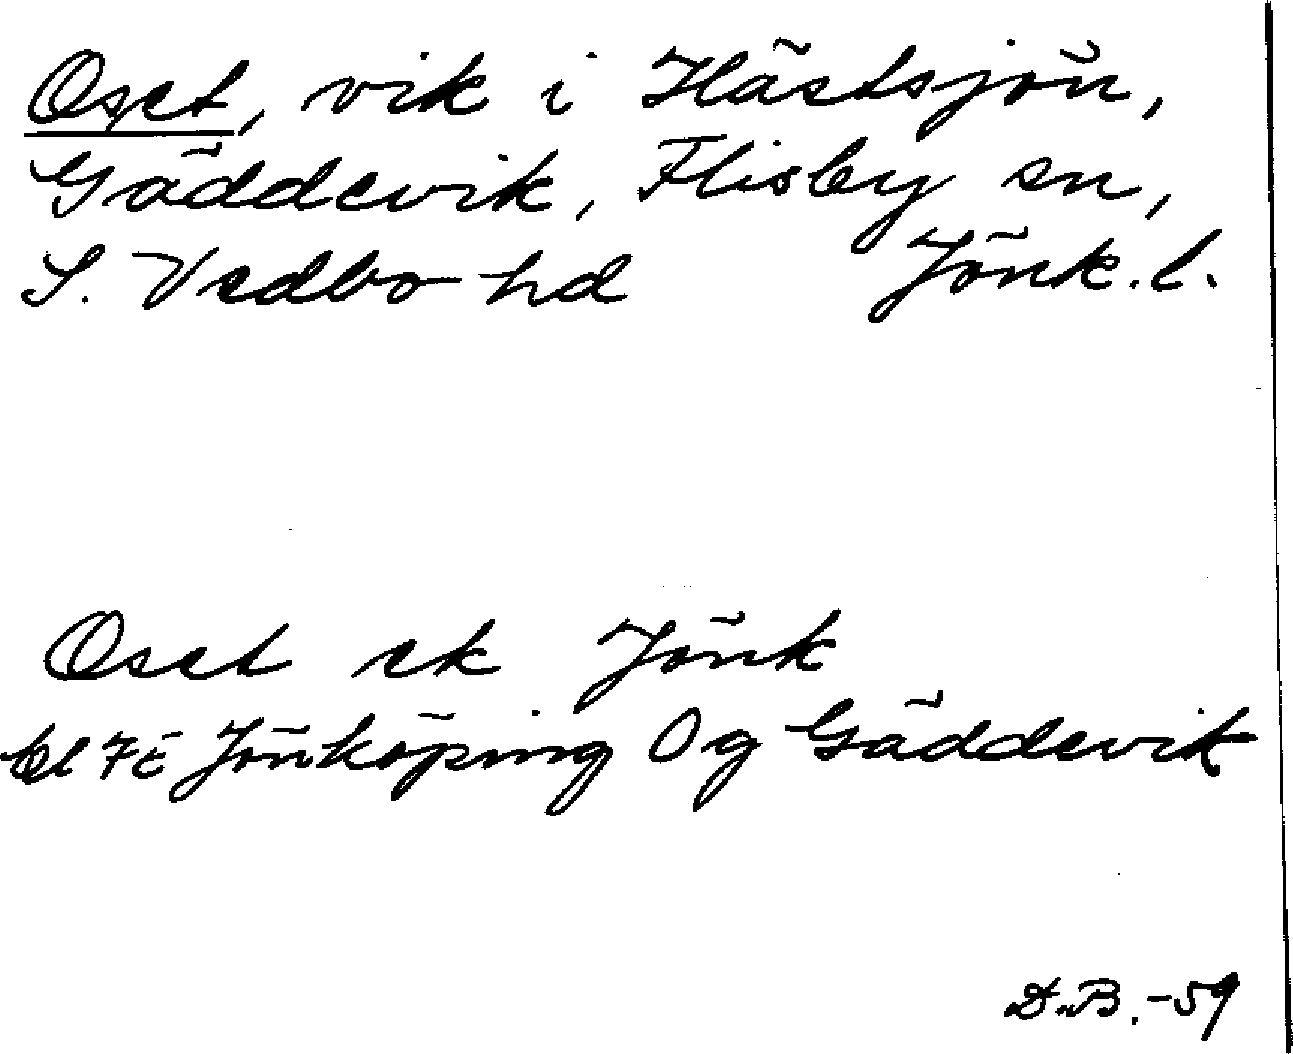 Oset, vik i Hästsjön,
Gäddevik, Flisby sn,
S. Vedbo hd Jönk. l.
Oset ek Jönk
bl 7E Jönköping Og Gäddevik
D.B. -59